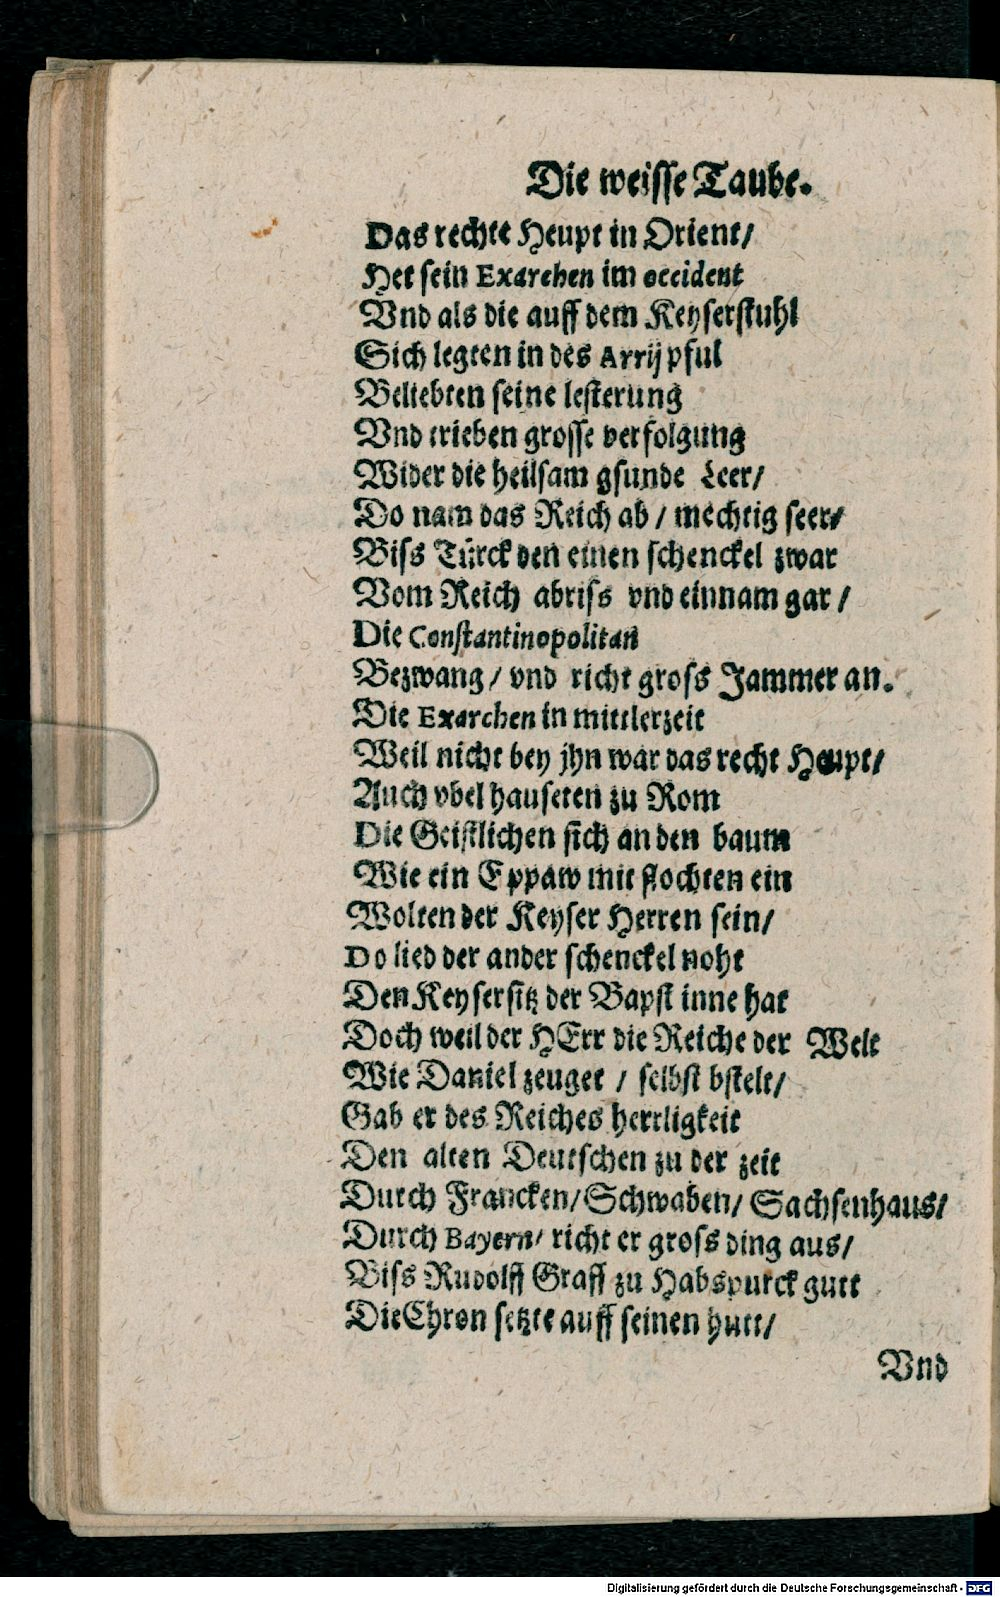 Die weisse Taube.
Das rechte Heupt in Orient/
Het sein Exarchen im occident
Vnd als die auff dem Keyserstuhl
Sich legten in des Arrij pful
Beliebten seine lesterung
Vnd trieben grosse verfolgung
Wider die heilsam gsunde Leer/
Do nam das Reich ab / mechtig seer/
Biss Türck den einen schenckel zwar
Vom Reich abriss vnd einnam gar /
Die Constantinopolitan
Bezwang / vnd richt gross Jammer an.
Die Exarchen in mittlerzeit
Weil nicht bey jhn war das recht Heupt/
Auch vbel hauseten zu Rom
Die Geistlichen sich an den baum
Wie ein Eppaw mit flochten ein
Wolten der Keyser Herren sein/
Do lied der ander schenckel noht
Den Keysersitz der Bapst inne hat
Doch weil der HErr die Reiche der Welt
Wie Daniel zeuget / selbst bstelt/
Gab er des Reiches herrligkeit
Den alten Deutschen zu der zeit
Durch Francken/ Schwaben/ Sachsenhaus/
Durch Bayern/ richt er gross ding aus/
Biss Rudolff Graff zu Habspurck gutt
Die Chron setzte auff seinen hutt/
Vnd
Digitalisierung gefördert durch die Deutsche Forschungsgemeinschaft - DFG